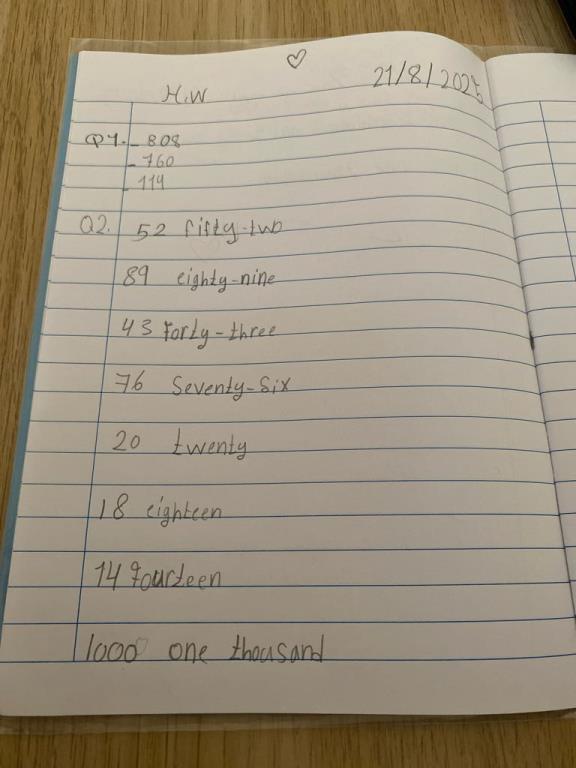 H.W 21/8/2025
Q1. - 808
- 760
- 114
Q2. 52 fifty-two
89 eighty-nine
43 Forty-three
76 Seventy-Six
20 twenty
18 eighteen
14 fourteen
1000 one thousand